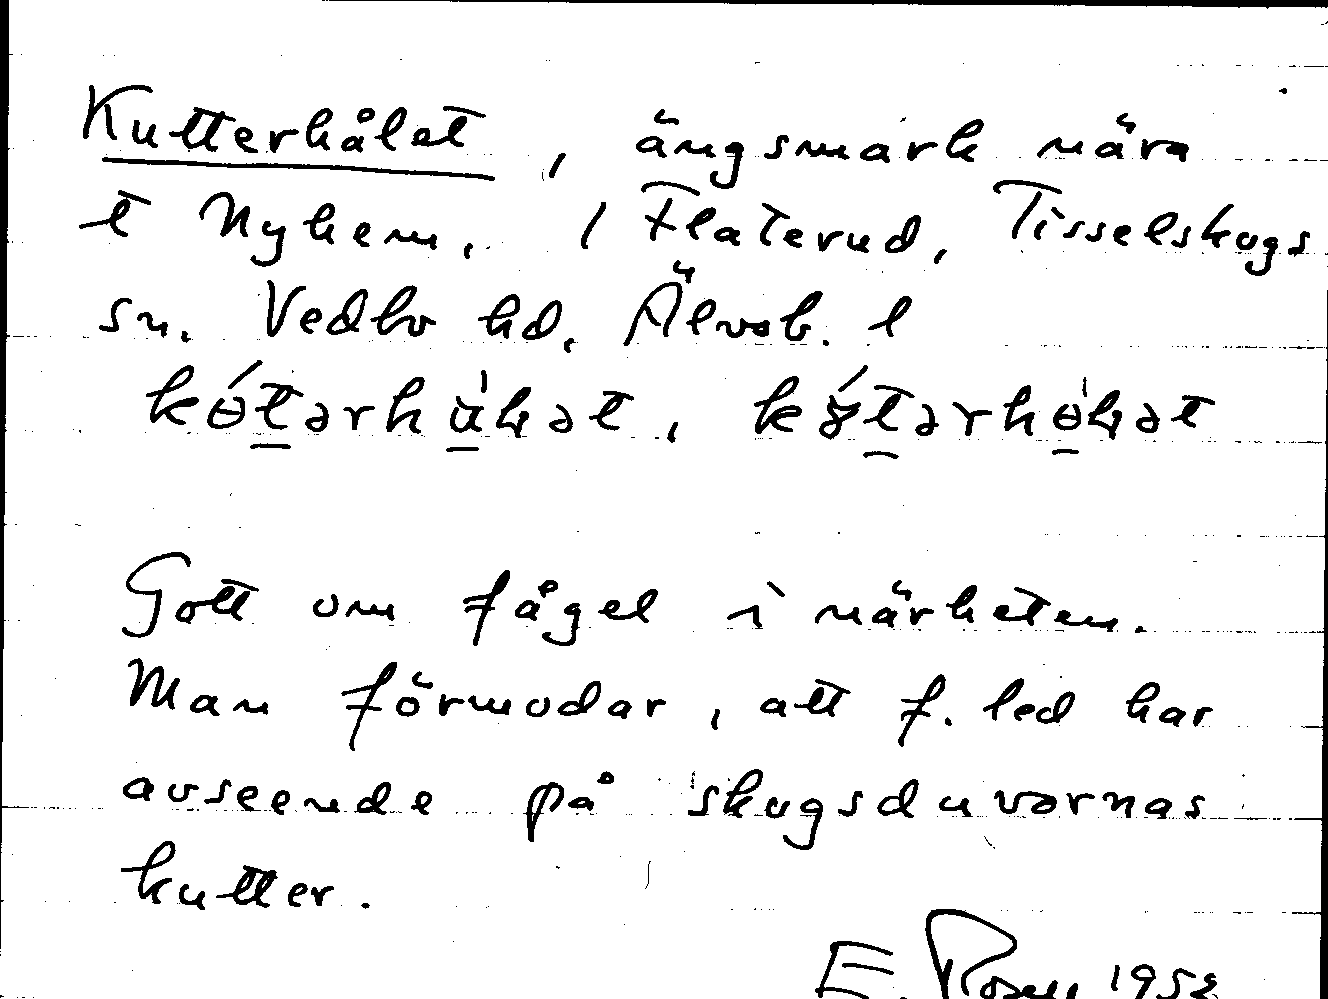 Kutterhålet, ängsmark nära
t Nyhem, / Flaterud, Tisselskogs
sn. Vedbo hd, Älvsb. l
Gott om fågel i närheten.
Man förmodar, att f. led har
avseende på skogsduvornas
kutter.
E. Rosell 1952